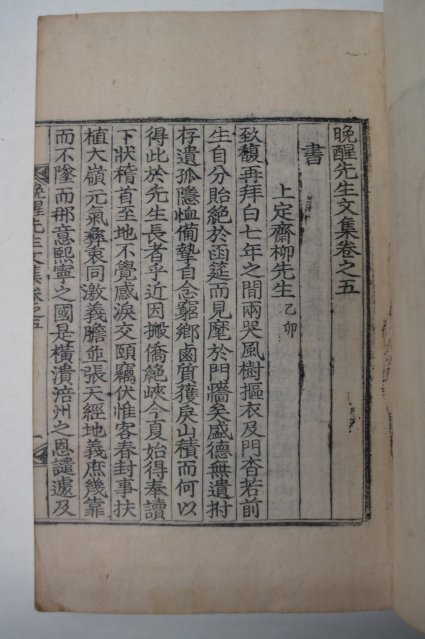 晩醒先生文集卷之五
書
上定齋柳先生 乙卯
致馥再拜白七年之間兩哭風樹摳衣及門杳若前
生自分貽絶於函筵而見麾於門牆矣盛德無遺拊
存遺孤隱恤備摯自念窮鄕鹵質獲戾山積而何以
得此於先生長者乎近因搬僑絶峽今夏始得奉讀
下狀稽首至地不覺感淚交頤竊伏惟客春封事扶
植大嶺元氣彛衷同激義膽並張天經地義庶幾靠
而不墜而那意熙寧之國是橫潰涪州之恩譴遽及
晩醒先生文集卷之五 一